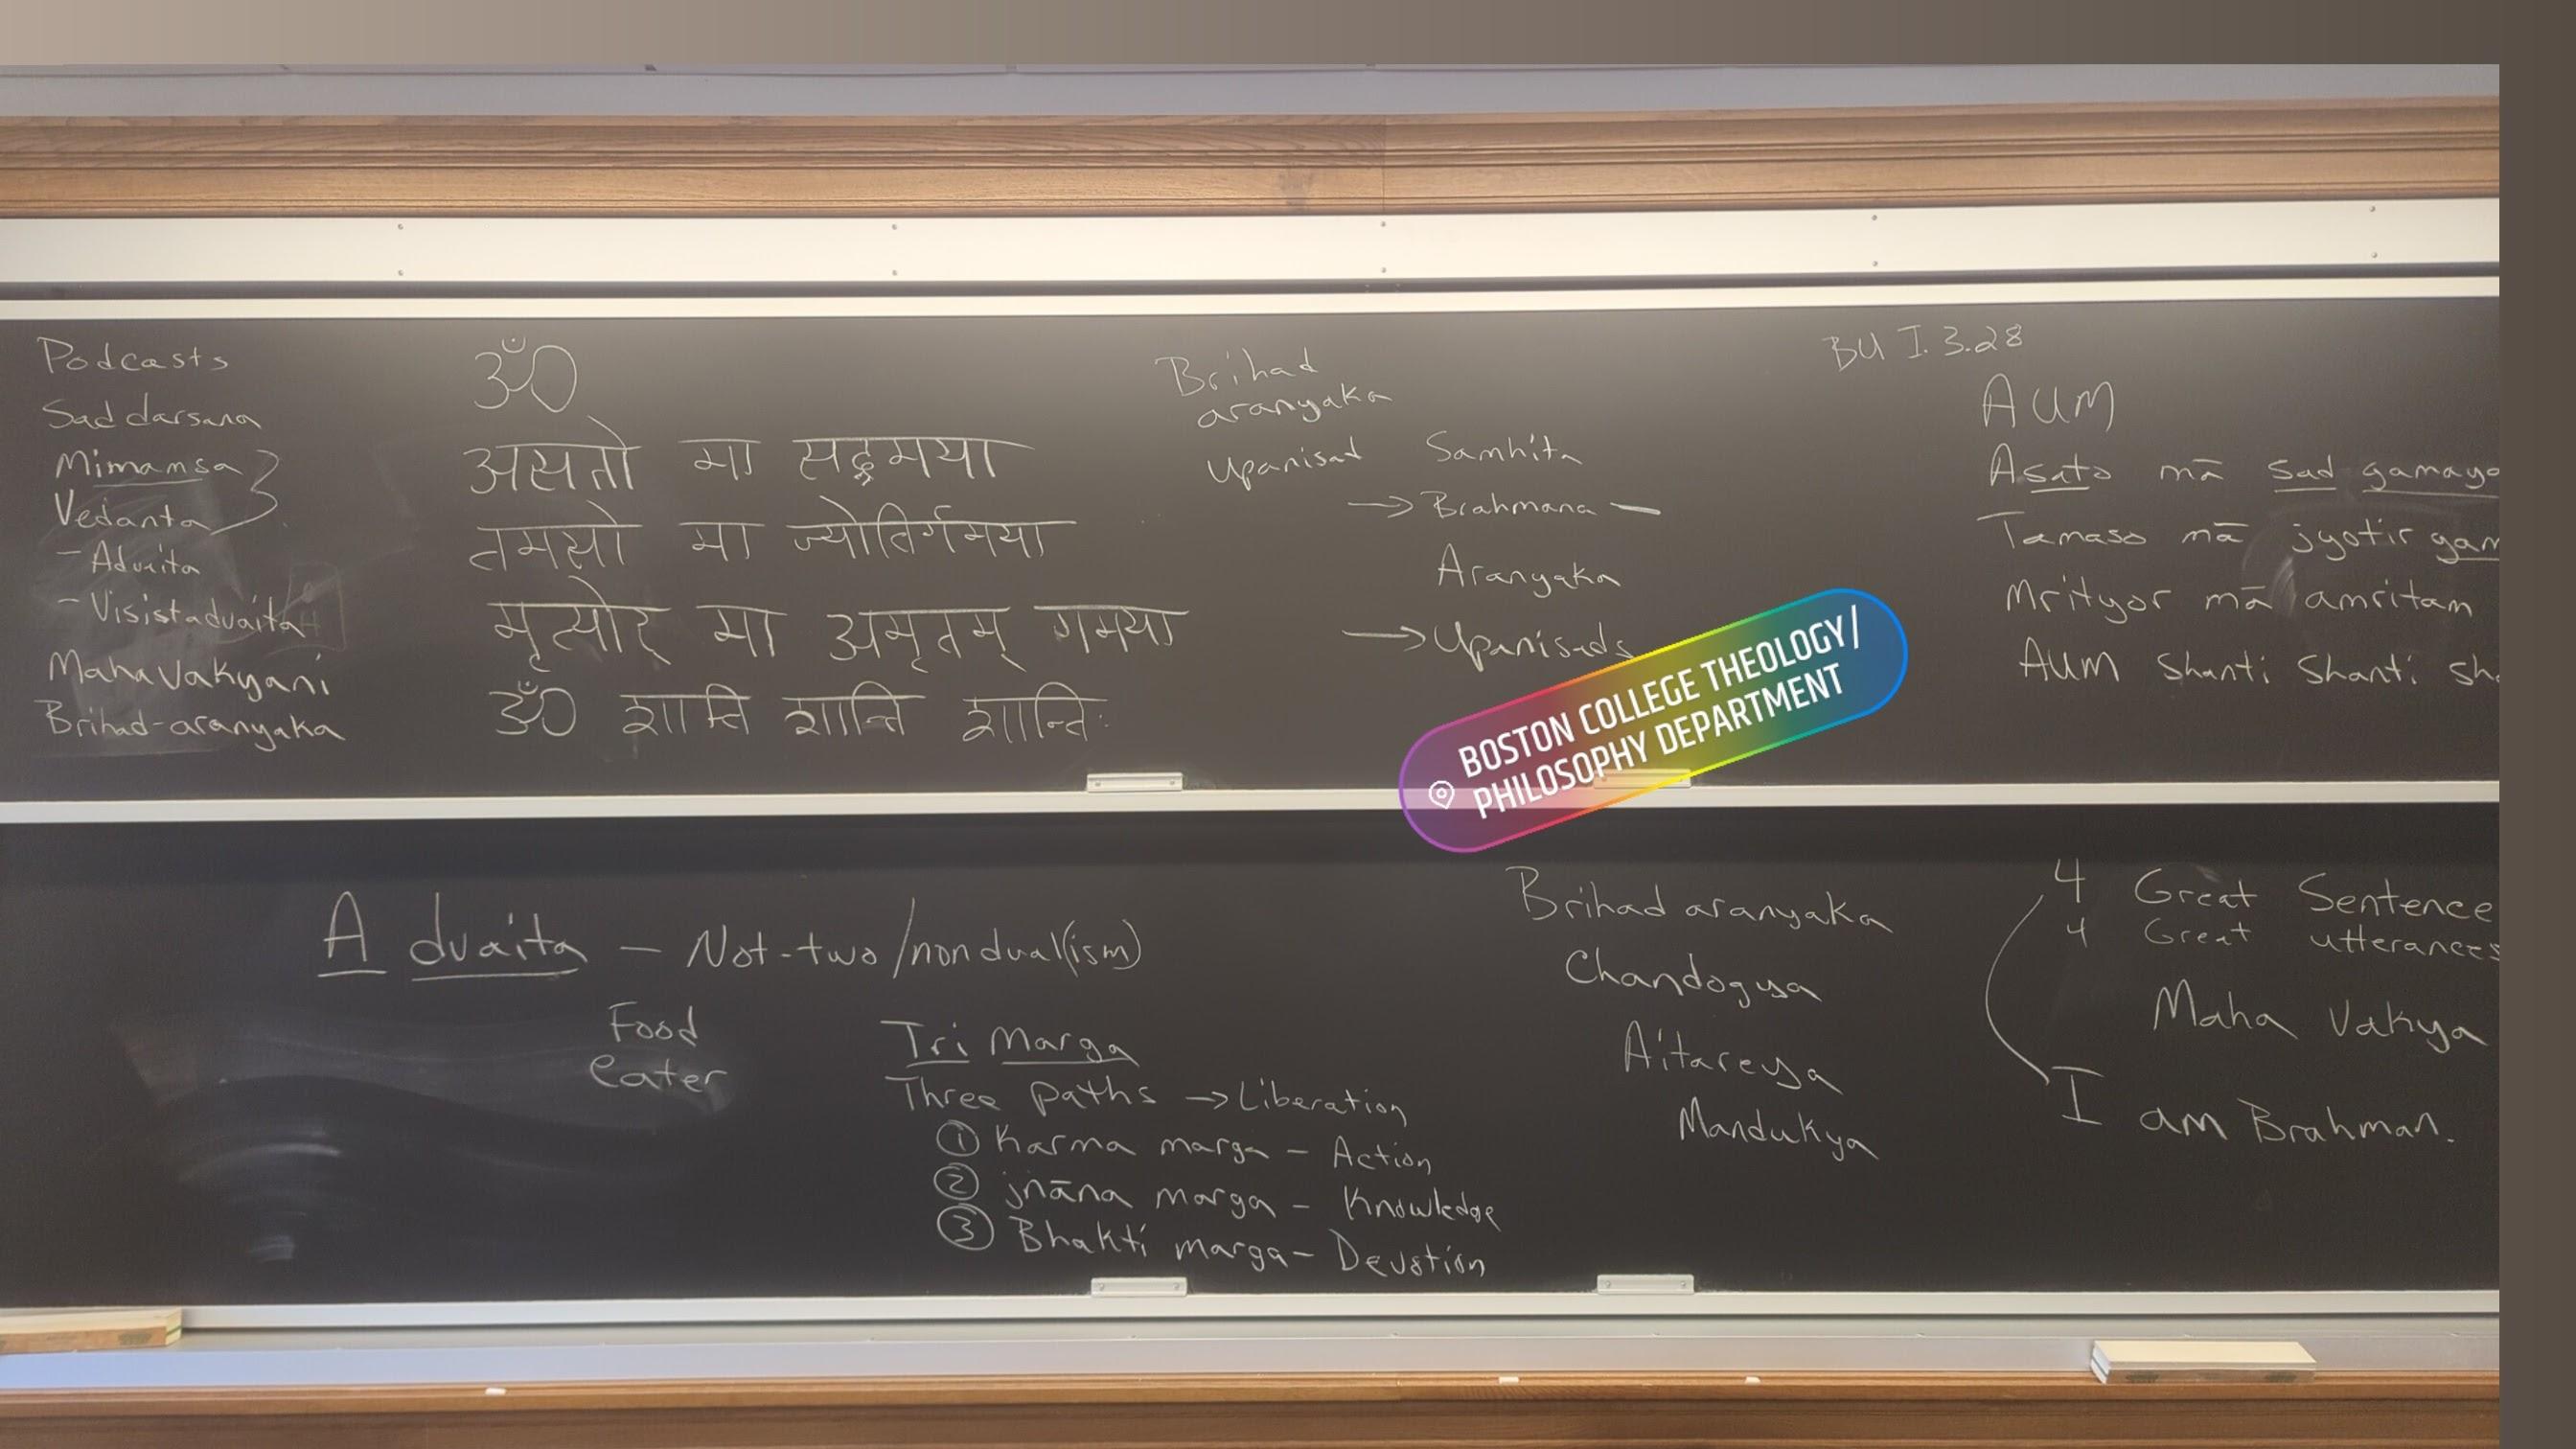 Podcasts
Sad darsana
Mimamsa
Vedanta
- Advaita
- Visistadvaita
Maha Vakyani
Brihad-aranyaka
ॐ
असतो मा सद्गमया
तमसो मा ज्योतिर्गमया
मृत्योर् मा अमृतम् गमया
ॐ शान्ति शान्ति शान्तिः
Brihad
aranyaka
Upanisad
Samhita
→ Brahmana —
Aranyaka
→ Upanisads
BU I.3.28
AUM
Asato mā sad gamaya
Tamaso mā jyotir gam
Mrityor mā amritam
AUM Shanti Shanti Sh
BOSTON COLLEGE THEOLOGY/
PHILOSOPHY DEPARTMENT
A dvaita – Not-two/nondual(ism)
Food
eater
Tri Marga
Three paths → Liberation
① Karma marga – Action
② jnāna marga – Knowledge
③ Bhakti marga – Devotion
Brihad aranyaka
Chandogya
Aitareya
Mandukya
4 Great Sentence
4 Great utterances
Maha Vakya
I am Brahman.